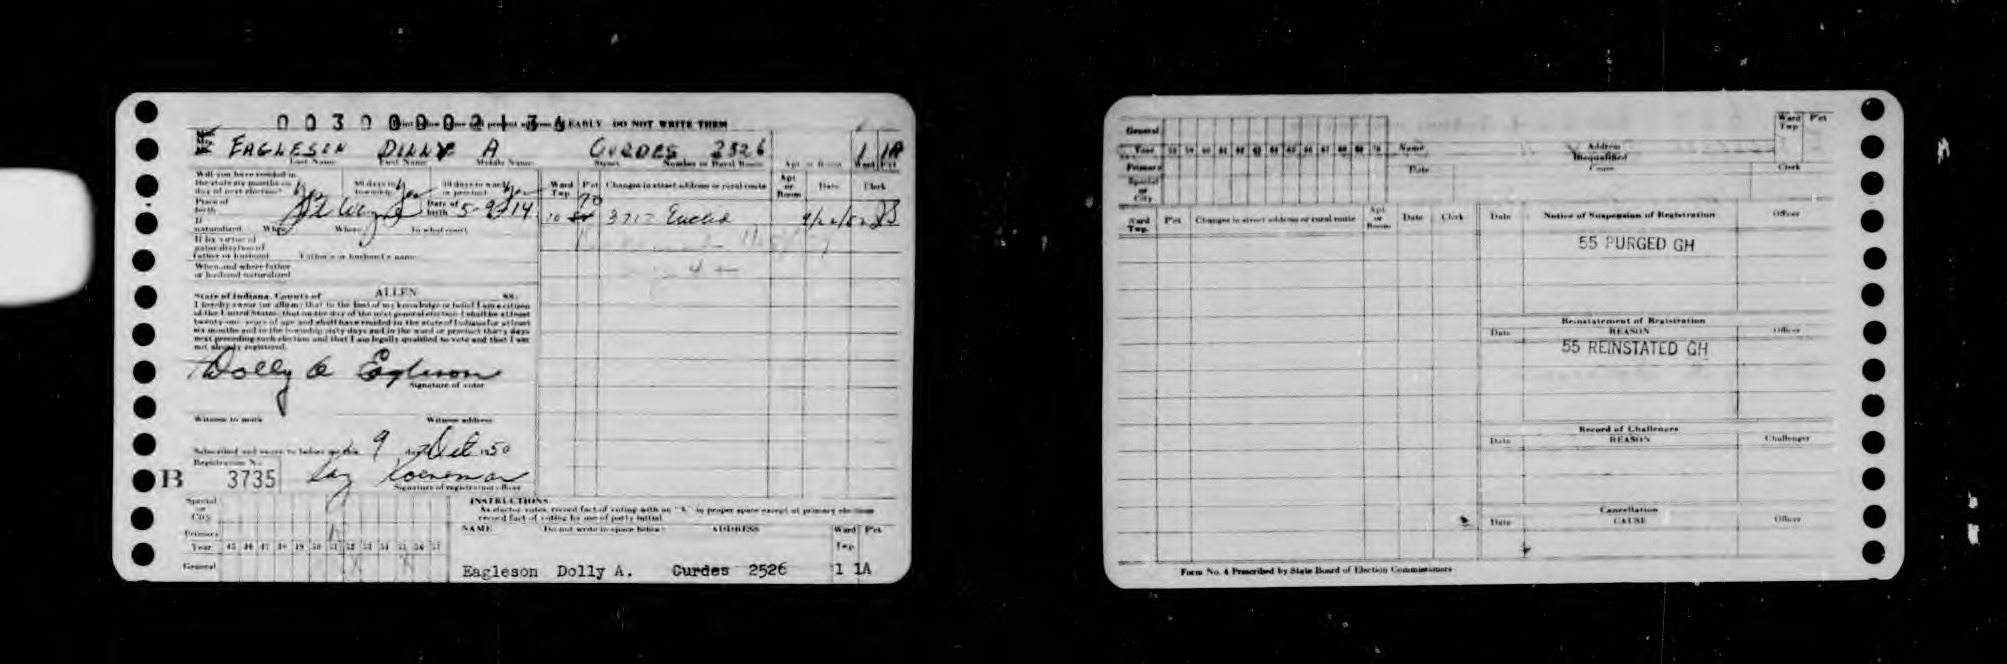 EARLY DO NOT WRITE THEM
EAGLESON DOLLY A GURDES 2526 1 1A
Last Name First Name Middle Name Street Number or Rural Route Apt or Room Ward Pct
Will you have resided in
the state six months on
day of next election? Yes 60 days in
township Yes 30 days in ward
or precinct Yes
Ward Twp. Pct Changes in street address or rural route Apt or Room Date Clerk
Place of
birth Ft Wayne Date of
birth 5-9-14
70
10 3717 Euclid 9/22/52
If
naturalized When Where In what court
If by virtue of
naturalization of
father or husband Father's or husband's name
When and where father
or husband naturalized
State of Indiana, County of ALLEN SS:
I hereby swear (or affirm) that to the best of my knowledge or belief I am a citizen
of the United States; that on the day of the next general election I shall be at least
twenty-one years of age and shall have resided in the state of Indiana for at least
six months and in the township sixty days and in the ward or precinct thirty days
next preceding such election and that I am legally qualified to vote and that I am
not already registered.
Dolly A Eagleson
Signature of voter
Witness to mark Witness address
Subscribed and sworn to before me this 9 day Oct 1950
Registration No.
B 3735
Signature of registration officer
INSTRUCTIONS
As elector votes, record fact of voting with an "X" in proper space except at primary elections
record fact of voting by use of party initial.
Special
or
City
Primary
Year 45 46 47 48 49 50 51 52 53 54 55 56 57
General
NAME Do not write in space below ADDRESS Ward Twp Pct
Eagleson Dolly A. Gurdes 2526 1 1A
General
Year 58 59 60 61 62 63 64 65 66 67 68 69 70 Name Address Ward Twp Pct
Primary
Special
or
City
Date Disqualified
Cause Clerk
Ward
Twp. Pct Changes in street address or rural route Apt or Room Date Clerk
Date Notice of Suspension of Registration Officer
55 PURGED GH
Reinstatement of Registration
Date REASON Officer
55 REINSTATED GH
Record of Challenges
Date REASON Challenger
Cancellation
Date CAUSE Officer
Form No. 4 Prescribed by State Board of Election Commissioners